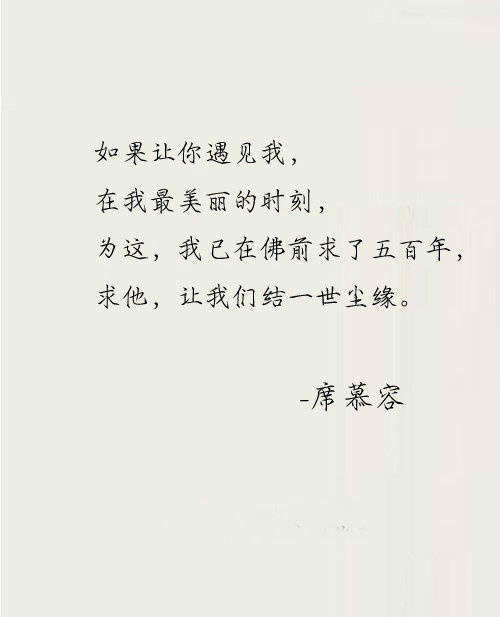 如果让你遇见我，
在我最美丽的时刻，
为这，我已在佛前求了五百年，
求他，让我们结一世尘缘。
-席慕容